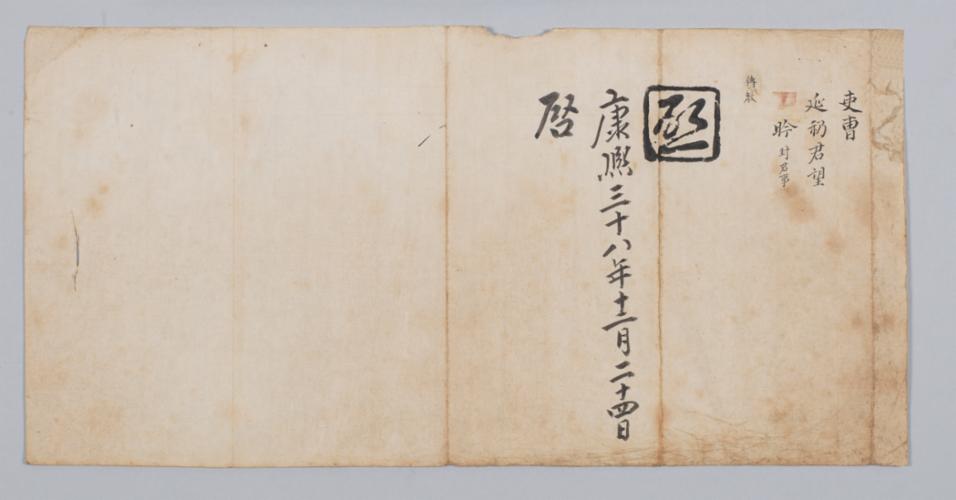 吏曹
延礽君望
昑 封君事
傳敎
啓
康熙三十八年十二月二十四日
啓